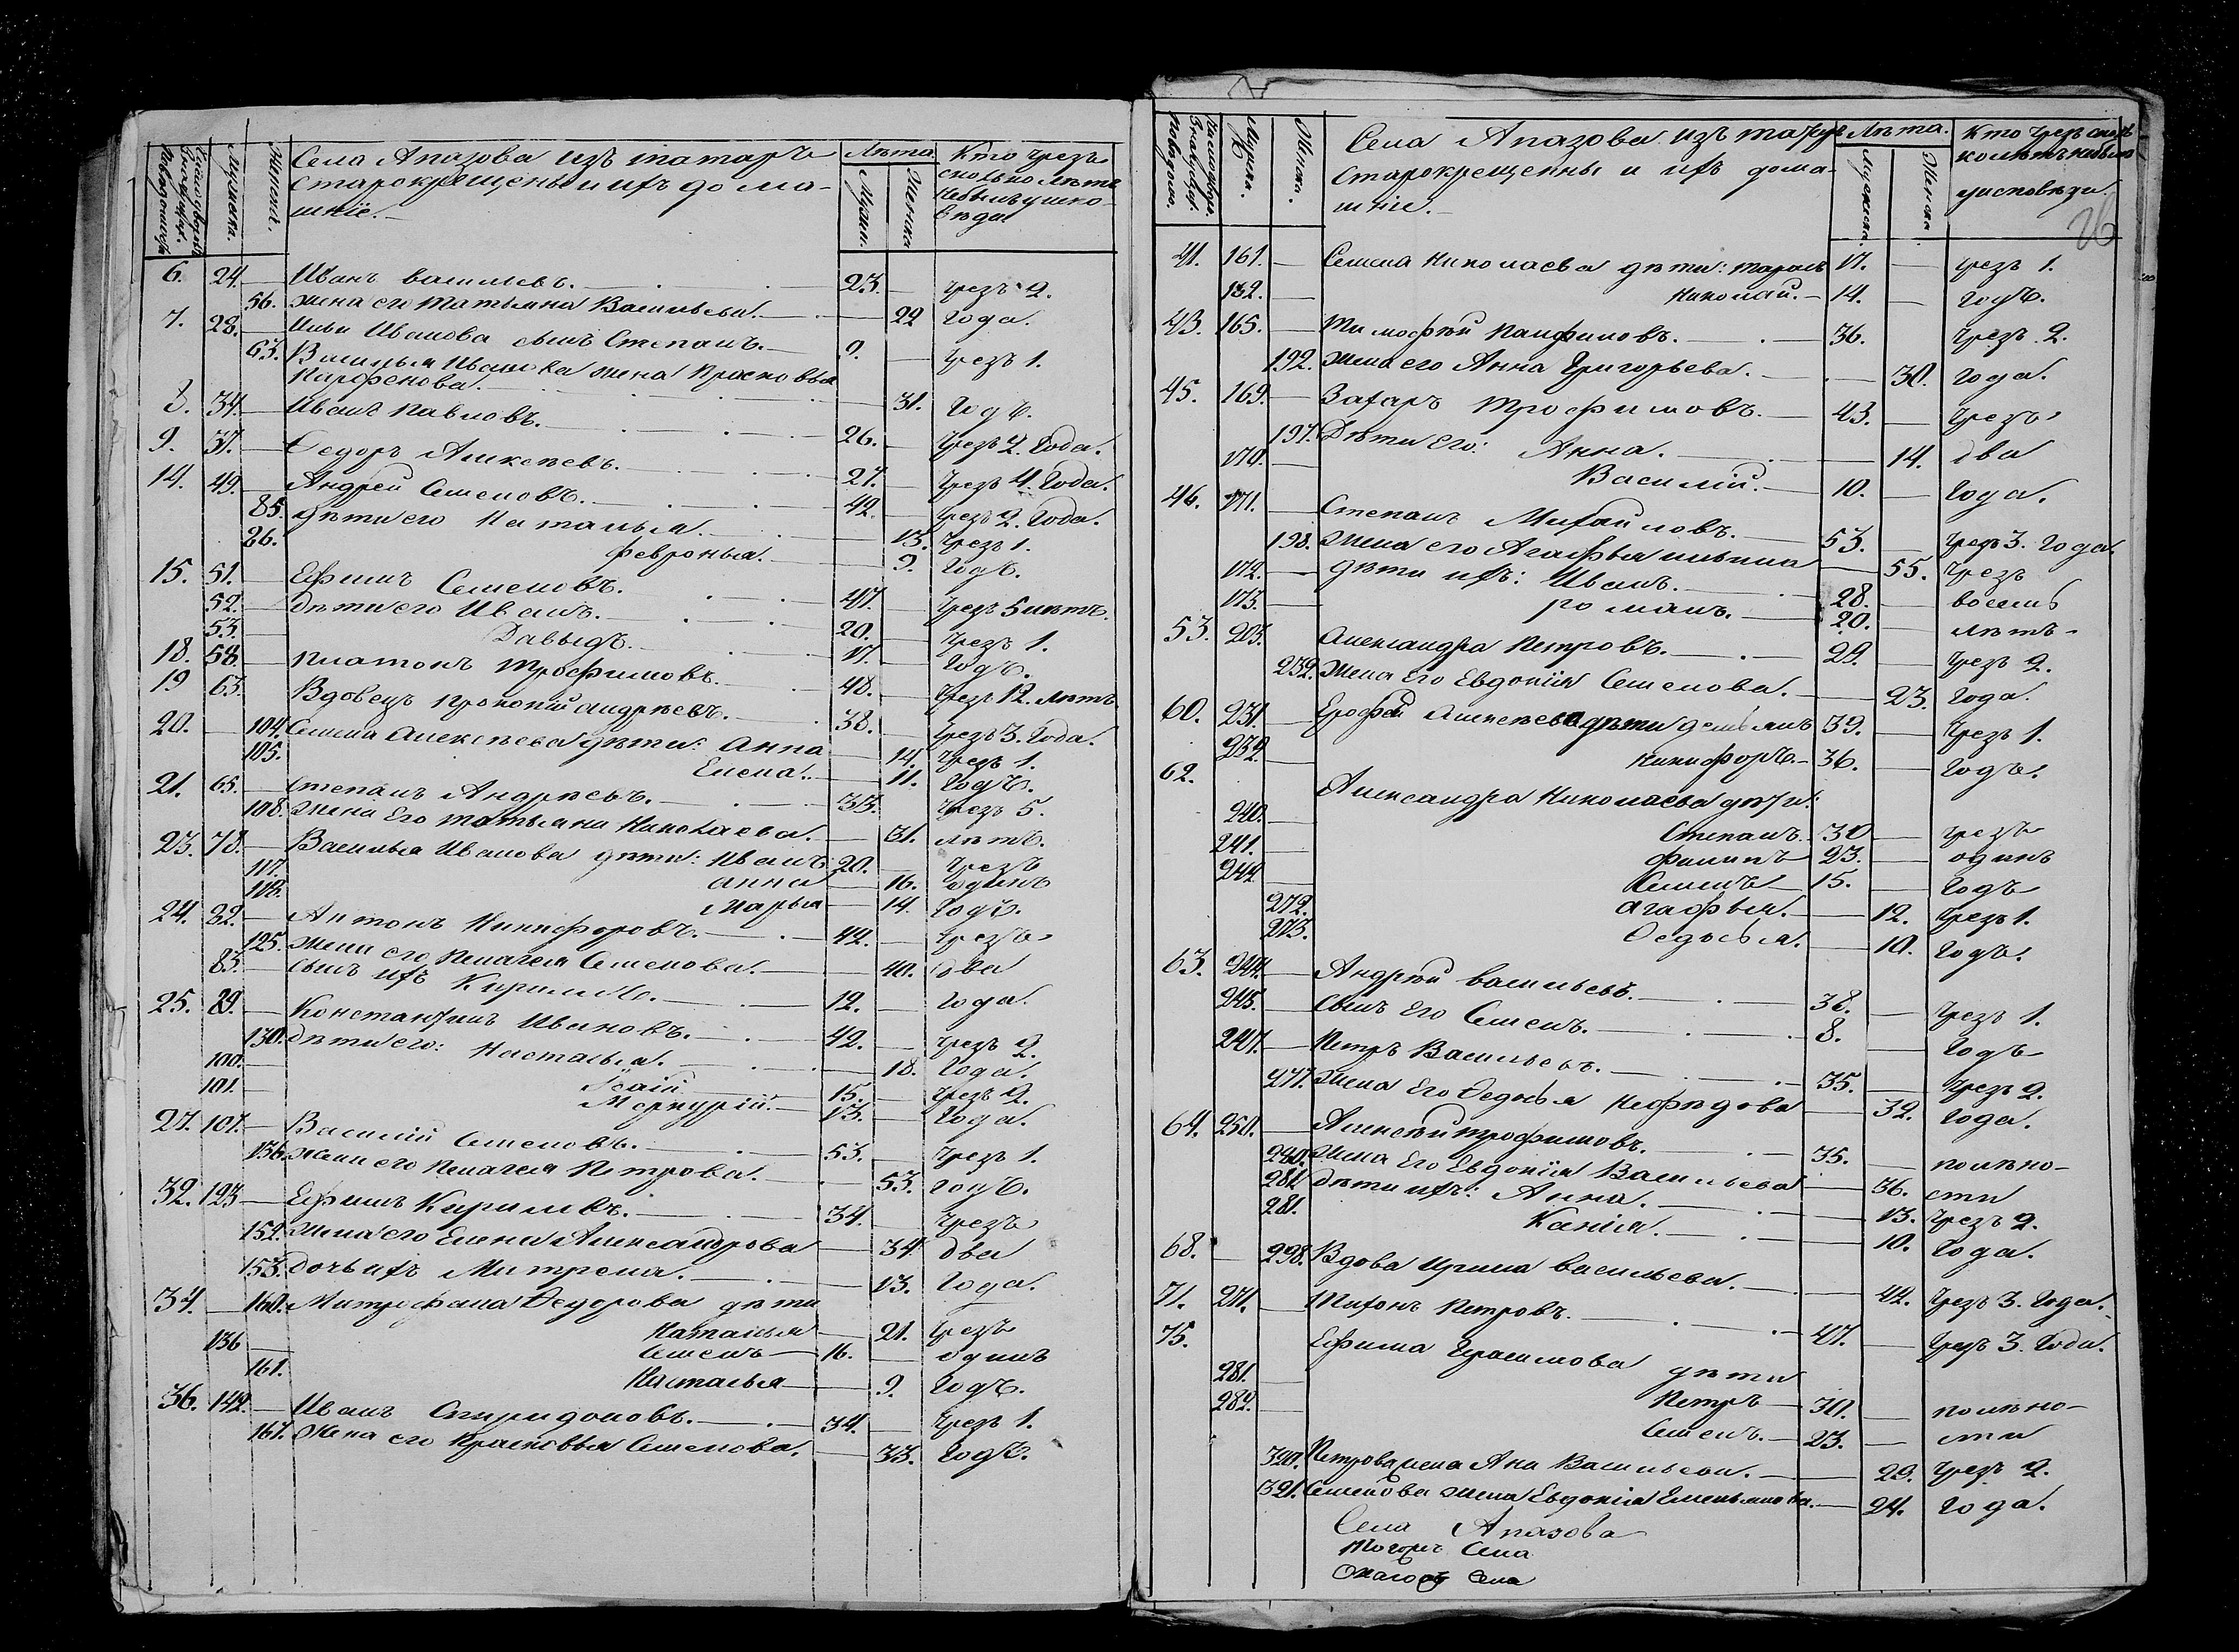 Села Апазова изъ татаръ
старокрещены и ихъ дома-
шніе.
Лѣта
Кто чрезъ
сколько лѣтъ
небылъ у испо-
вѣди
Мужска.
Женска.
Мужск.
Женска
6. 24. — Иванъ васильевъ. — 23. — чрезъ 2.
56. жена его Татьяна Васильева. — 22 года.
7. 28. — Ильи Иванова сынъ Степанъ. — 9. — чрезъ 1.
63. Василья Иванова жена Прасковья
Парфенова. — 31. годъ.
8. 34. — Иванъ Павловъ. — 26. — чрезъ 2. года.
9. 37. — Ѳедоръ Алексѣевъ. — 27. — чрезъ 4. года.
14. 49. — Андрей Семеновъ. — 42. — чрезъ 2. года.
85. дѣти его Наталья. — 13. чрезъ 1.
86. Февронья. — 9. годъ.
15. 51. — Ефимъ Семеновъ. — 47. — чрезъ 5 лѣтъ.
52. — дѣти его Иванъ. — 20. — чрезъ 1.
53. — Давыдъ. — 17. — годъ.
18. 58. — Платонъ Трофимовъ. — 48. — чрезъ 12. лѣтъ
19 63. — Вдовецъ Прокопій андрѣевъ. — 38. — чрезъ 3. года.
20. — 104. Семена Алексѣева дѣти: Анна — 14. чрезъ 1.
105. Елена. — 11. годъ.
21. 65. — Степанъ Андрѣевъ. — 33. — чрезъ 5.
108. жена Его Татьяна Николаева. — 31. лѣтъ.
23. 78. — Василья Иванова дѣти: Иванъ 20. — чрезъ
117. анна — 16. одинъ
118. Марья — 14. годъ.
24. 82. — Антонъ Никифоровъ. — 42. — чрезъ
125. жена его Пелагея Семенова. — 40. два
83. — сынъ ихъ Кирилъ. — 12. года.
25. 89. — Константинъ Ивановъ. — 42. — чрезъ 2.
130. дѣти его: Настасья. — 18. года.
100. — Исаій — 15. — чрезъ 2.
101. — Меркурій. — 13. — года.
27. 107. — Василій Семеновъ. — 53. — чрезъ 1.
136. жена его Пелагея Петрова. — 53. годъ.
32. 123 — Ефимъ Кириловъ. — 34. — чрезъ
152. жена его Елена Александрова — 34. два
153. дочь ихъ Митрена. — 13. года.
34. — 160. Митрофана Ѳедорова дѣти
Наталья — 21. чрезъ
136 — Семенъ — 16. — одинъ
161. Настасья — 9. годъ.
36. 142. — Иванъ Спиридоновъ. — 34. — чрезъ 1.
167. Жена его Прасковья Семенова. — 33. годъ.
Села Апазова изъ татаръ
старокрещенны и ихъ дома-
шніе.
Лѣта.
Кто чрезъ сколь
ко лѣтъ небылъ
уисповѣди
26
Мужска.
Женска.
Мужска
Женска
41. 161. — Семена Николаева дѣти: Тарасъ 17. — чрезъ 1.
162. — Николай. — 14. — годъ.
43. 165. — Тимофѣй Панфиловъ. — 36. — чрезъ 2.
192. Жена его Анна Григорьева. — 30. года.
45. 169. — Захаръ Трофимовъ. — 43. — чрезъ
197. Дѣти Его: Анна. — 14. два
170. — Василій. — 10. — года.
46. 171. — Степанъ Михайловъ. — 53. — чрезъ 3. года.
198. Жена его Агафья ильина — 55. чрезъ
172. — дѣти ихъ: Иванъ. — 28. — восемь
173. — романъ. — 20. — лѣтъ.
53. 203. Александра Петровъ. — 29. — чрезъ 2.
232. Жена Его Евдокія Семенова. — 23. года.
60. 231. — Ерофѣя Алексѣева дѣти демьянъ 39. — чрезъ 1.
232. — Никифоръ. — 36. — годъ.
62. Александра Николаева дѣти:
240. — Степанъ. — 30 — чрезъ
241. — филипъ — 23. — одинъ
242 — Семенъ — 15. — годъ
272. агафья. — 12. чрезъ 1.
273. Ѳедосья. — 10. годъ.
63. 244. — Андрѣй васильевъ. — 38. — чрезъ 1.
245. — сынъ Его Семенъ. — 8. — годъ
247. — Петръ Васильевъ. — 35. — чрезъ 2.
277. Жена Его Ѳедосья Нефедова — 32. года.
64. 250. — Алексѣй трофимовъ. — 35. — полѣно-
280. Жена Его Евдокія Васильева — 36. сти
281. Дѣти ихъ: Анна. — 13. чрезъ 2.
281. Капія. — 10. года.
68. — 298. Вдова Ирина васильева. — 42. чрезъ 3. года.
71. 271. — Тихонъ Петровъ. — 47. — чрезъ 3. года.
75. Ефима Герасимова дѣти
281. — Петръ — 30. — полѣно-
282. — Семенъ. — 23. — сти
320. Петрова жена Ана Васильева. — 29. чрезъ 2.
321. Семенова жена Евдокія Емельянова. — 24. года.
Села Апазова
Тогожъ Села
Села